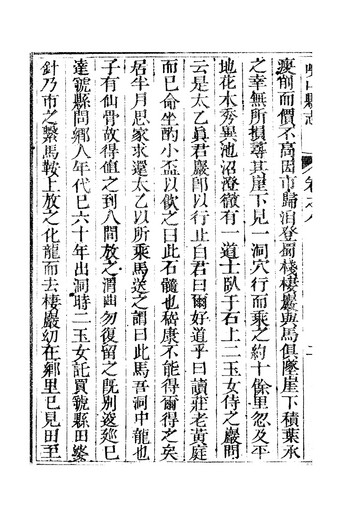 瘦削而價不高因市歸洎登蜀棧棲巖與馬俱墜崖下積葉承
之幸無所損尋其崖下見一洞穴行而乘之約十餘里忽及平
地花木秀異池沼澄微有一道士臥于石上二玉女侍之巖問
云是太乙眞君巖卽以行止白君曰爾好道乎曰讀莊老黃庭
而已命坐酌小盃以飲之曰此石髓也嵇康不能得爾得之矣
居半月思家求還太乙以所乘馬送之謂曰此馬吾洞中龍也
子有仙骨故得值之到人間放之渭曲勿復留之旣別逡廵已
達虢縣問鄉人年代已六十年出洞時二玉女託買虢縣田婆
針乃市之繫馬鞍上放之化龍而去棲巖幼在鄉里已見田至